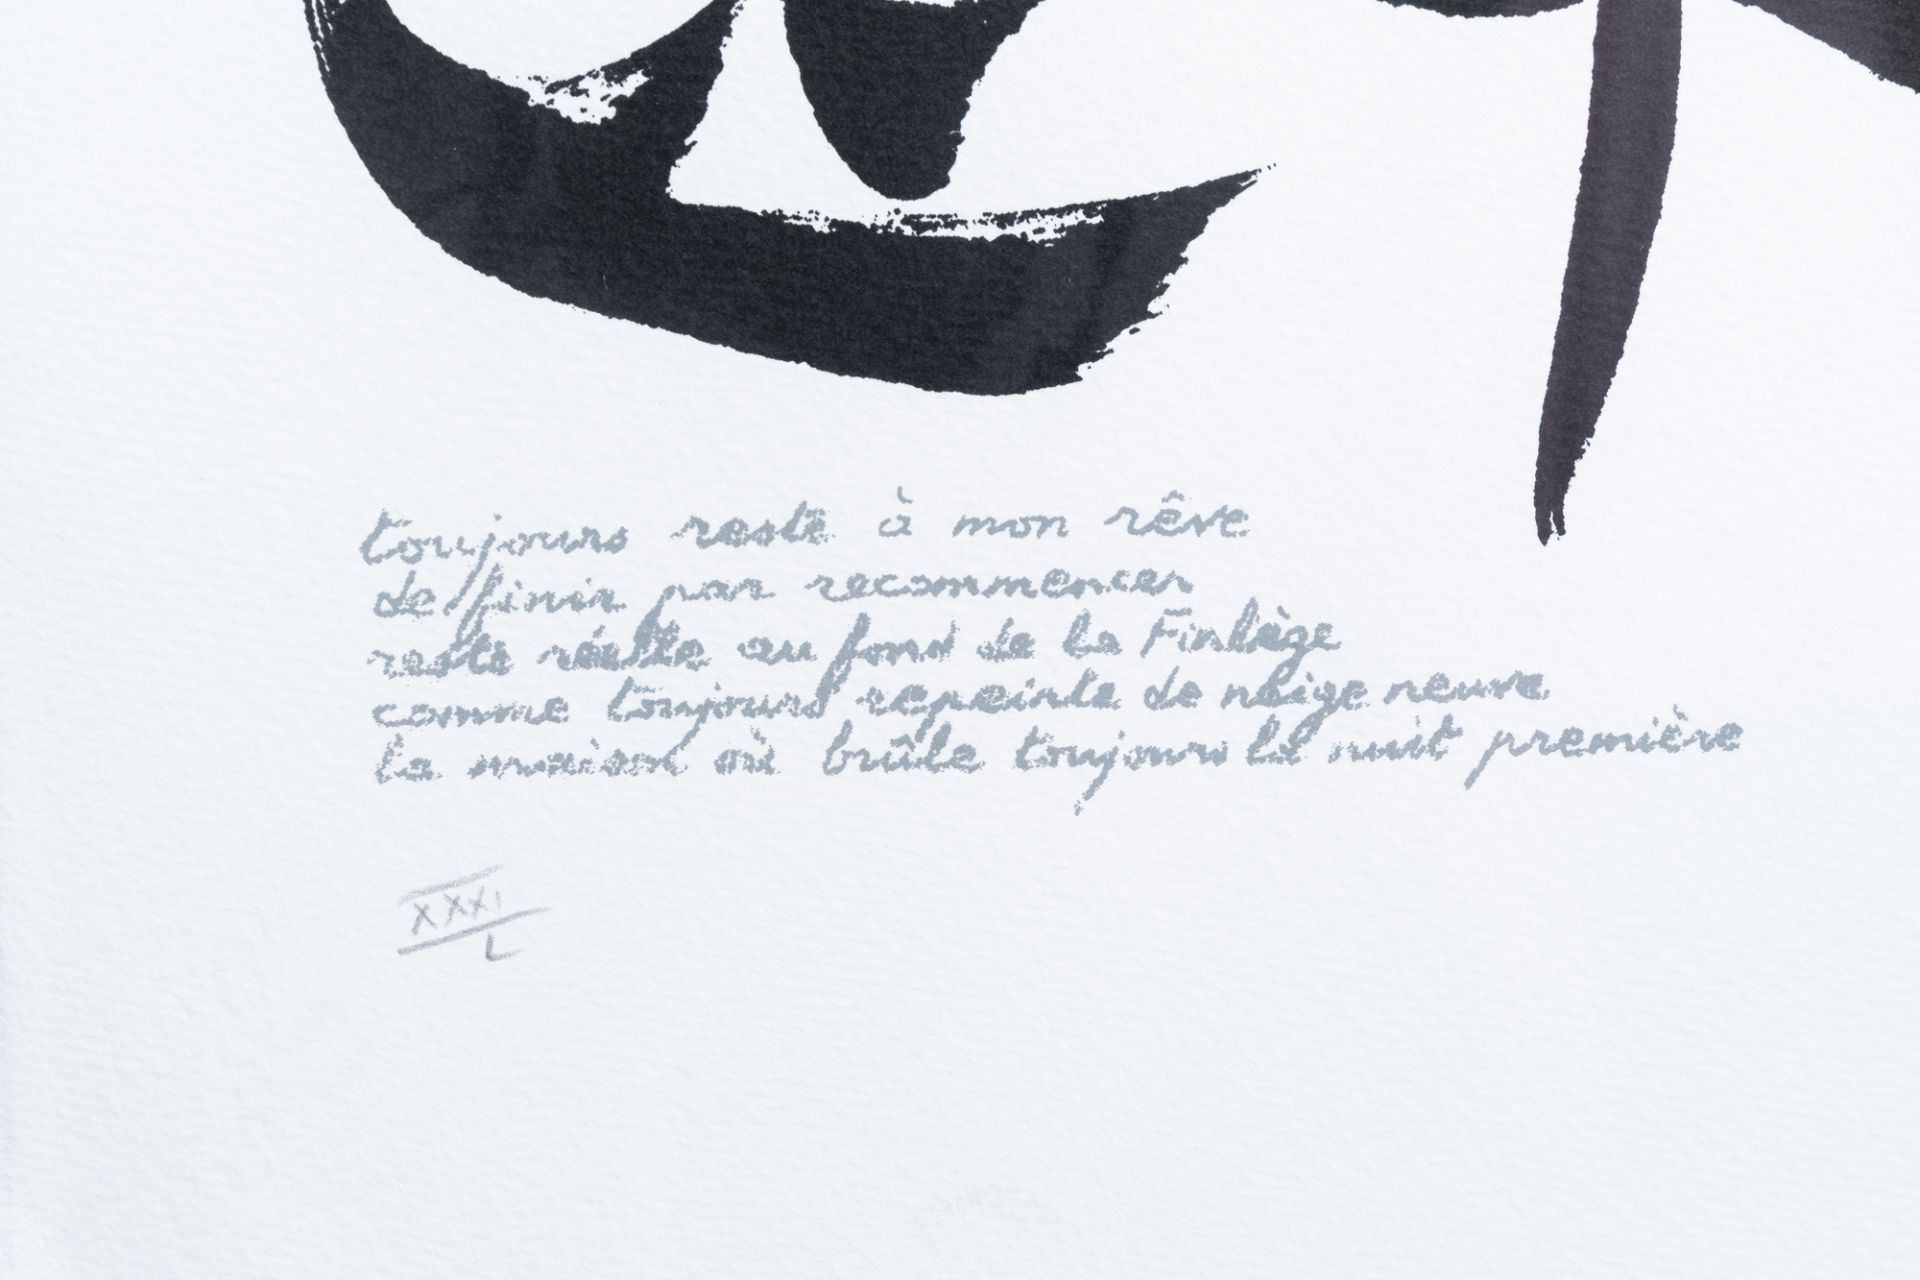 toujours reste à mon rêve
de finir par recommencer
reste réelle au fond de la
comme toujours repeinte de neige neuve
la maison où brûle toujours la nuit première
XXXI
L